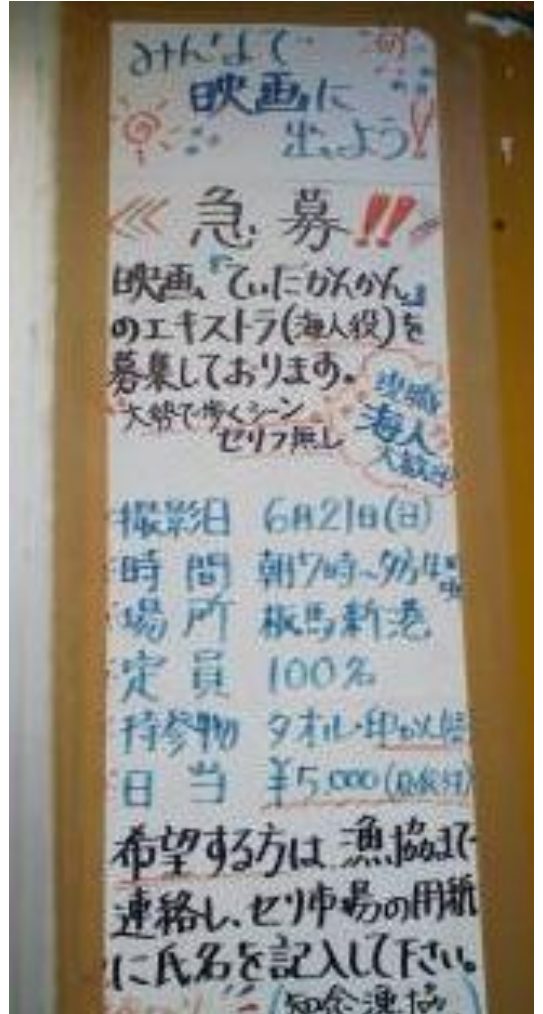 みんなで
映画に
出よう!
急募!!
映画『てぃだかんかん』
のエキストラ(海人役)を
募集しております。
大勢で歩くシーン
セリフ無し
現職
海人
大歓迎
撮影日 6月21日(日)
時間 朝7時~夕方
場所 板馬新港
定員 100名
持参物 タオル・印かん
日当 ¥5,000
希望する方は漁協まで
連絡し、セリ市場の用紙
に氏名を記入して下さい。
(知念漁協